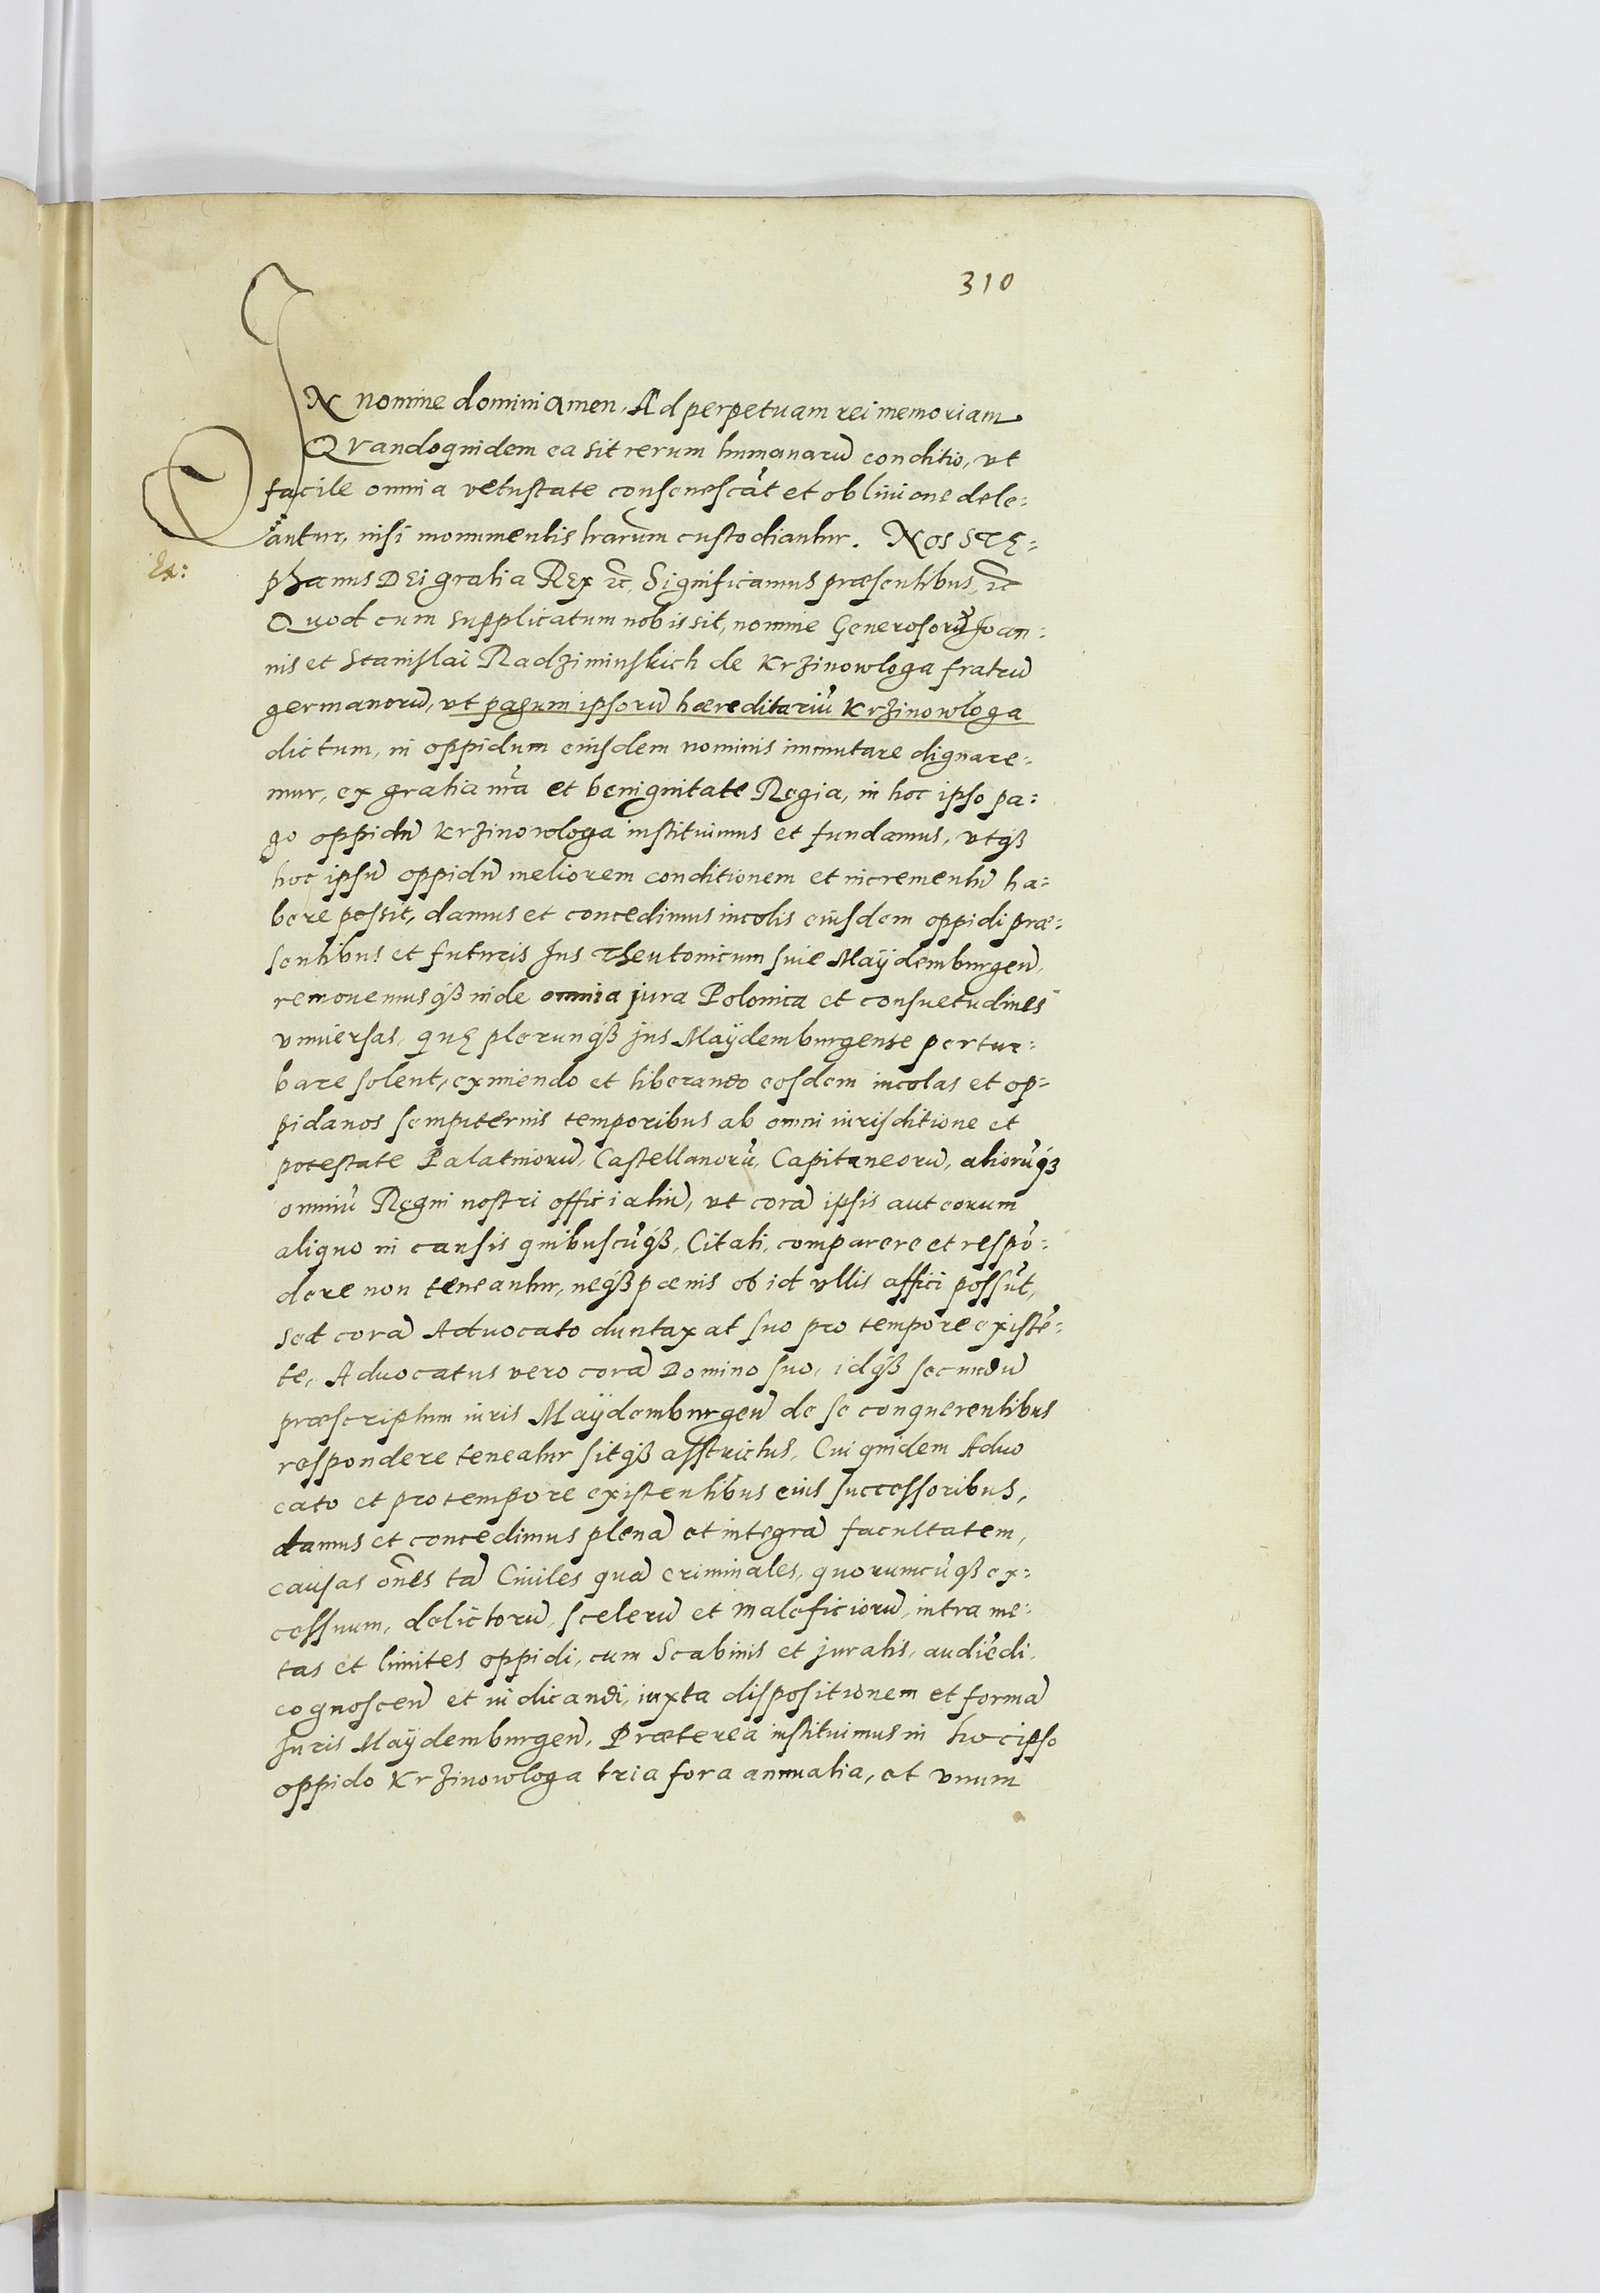 310
IN nomine domini amen, Ad perpetuam rei memoriam
QVandoquidem ea sit rerum humanarū conditio, vt
facile omnia vetustate consenescāt et obliuione dele:
antur, nisi monumentis lrarum custodiantur. Nos STĘ:
phanus DEi gratia REx etc, Significamus præsentibus, etc
Ex:
Quod cum supplicatum nobis sit, nomine Generosorū Joan:
nis et Stanislai Radziminskich de Krzinowloga fratrū
germanorū, vt pagum ipsorū hæreditariū Krzinowloga
dictum, in oppidum eiusdem nominis immutare dignare:
mur, ex gratia nrā et benignitate Regia, in hoc ipso pa:
go oppidū Krzinowloga instituimus et fundamus, vtqȝ
hoc ipsū oppidū meliorem conditionem et incrementū ha:
bere possit, damus et concedimus incolis eiusdem oppidi præ:
sentibus et futuris Jus Theutonicum siue Maÿdemburgen̄,
remouemusqȝ inde omnia jura Polonica et consuetudines
vniuersas, quę plerunqȝ jus Maÿdemburgense pertur:
bare solent, eximendo et liberando eosdem incolas et op:
pidanos sempiternis temporibus ab omni iurisditione et
potestate Palatinorū, Castellanorū, Capitaneorū, aliorūqȝ
omniū Regni nostri officialiū, vt corā ipsis aut eorum
aliquo in causis quibuscūqȝ, Citati, comparere et respō:
dere non teneantur, neqȝ pœnis ob id vllis affici possūt,
sed corā Aduocato duntaxat suo pro tempore existē:
te, Aduocatus vero corā Domino suo, idqȝ secundū
præscriptum iuris Maÿdemburgen̄ de se conquerentibus
respondere teneatur sitqȝ asstrictus, Cui quidem Aduo
cato et pro tempore existentibus eius successoribus,
damus et concedimus plenā et integrā facultatem,
causas oēs tā Ciuiles quā criminales, quorumcūqȝ ex:
cessuum, delictorū, scelerū et maleficiorū, intra me:
tas et limites oppidi, cum Scabinis et juratis, audiēdi,
cognoscen̄ et iudicandi, iuxta dispositionem et formā
Juris Maÿdemburgen̄, Præterea instituimus in hoc ipso
oppido Krzinowloga tria fora annualia, et vnum